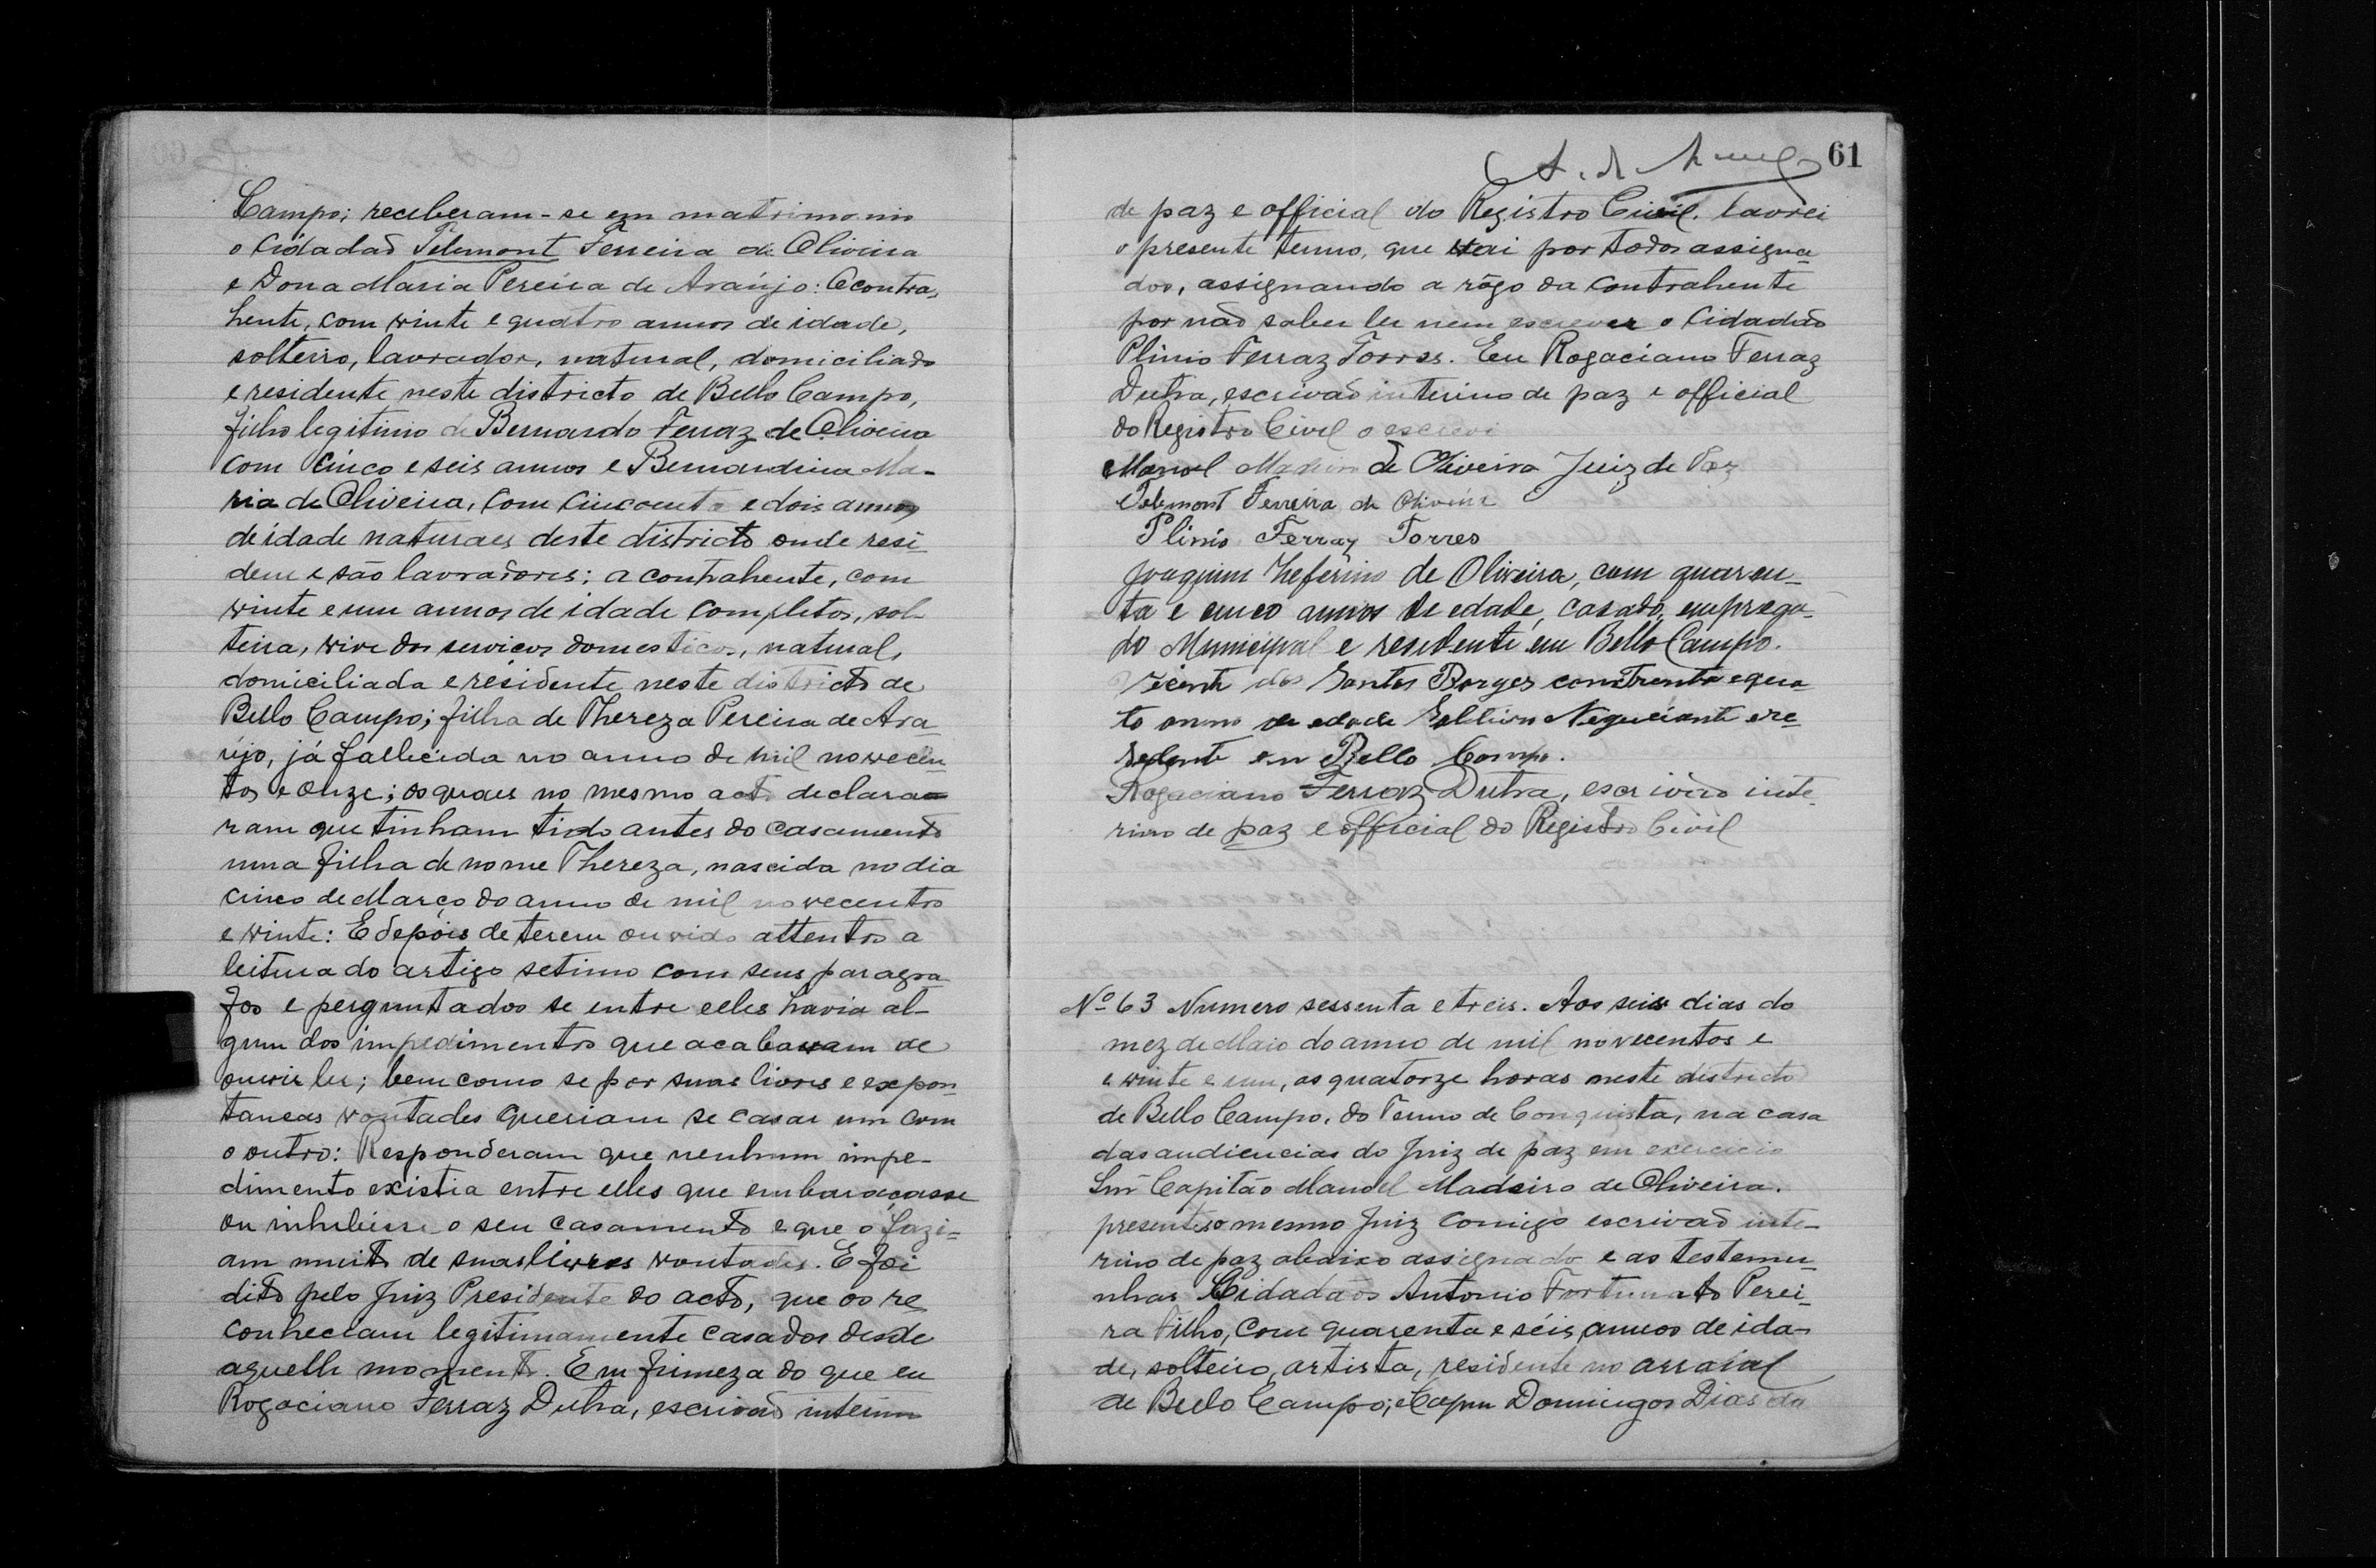 Campo; receberam-se em matrimonio
o Cidadão Telemont Ferreira de Oliveira
e Dona Maria Pereira de Araújo: O contra-
hente, com vinte e quatro annos de idade,
solteiro, lavrador, natural, domiciliado
e residente neste districto de Bello Campo,
filho legitimo de Bernardo Ferraz de Oliveira
com cinco e seis annos e Bernardina Ma-
ria de Oliveira, com cincoenta e dois annos
de idade naturaes deste districto onde resi-
dem e são lavradores; a contrahente, com
vinte e um annos de idade completos, sol-
teira, vive dos serviços domesticos, natural,
domiciliada e residente neste districto de
Bello Campo; filha de Thereza Pereira de Ara-
újo, já fallecida no anno de mil novecen-
tos e onze; os quaes no mesmo acto declara-
ram que tinham tido antes do casamento
uma filha de nome Thereza, nascida no dia
cinco de Março do anno de mil novecentos
e vinte: E depois de terem ouvido attentos a
leitura do artigo setimo com seus paragra-
fos e perguntados se entre elles havia al-
gum dos impedimentos que acabavam de
ouvir ler; bem como se por suas livres e expon-
taneas vontades queriam se casar um com
o outro: Responderam que nenhum impe-
dimento existia entre elles que embaraçasse
ou inhibisse o seu casamento e que o fazi-
am muito de suas livres vontades. E foi
dito pelo Juiz Presidente do acto, que os re-
conheciam legitimamente casados desde
aquelle momento. Em firmeza do que eu
Rogaciano Ferraz Dutra, escrivão interino
61
de paz e official do Registro Civil. lavrei
o presente termo, que vai por todos assigna-
dos, assignando a rôgo da contrahente
por não saber ler nem escrever o Cidadão
Plinio Ferraz Torres. Eu Rogaciano Ferraz
Dutra, escrivão interino de paz e official
do Registro Civil o escrevi
Manoel Madeira de Oliveira Juiz de Paz
Telemont Ferreira de Oliveira
Plinio Ferraz Torres
Joaquim Zeferino de Oliveira, com quaren-
ta e cinco annos de edade, casado, emprega-
do Municipal e residente em Bello Campo.
Vicente dos Santos Borges com trenta e qua
to annos de edade Solteiro Negociante e re-
sedente em Bello Campo.
Rogaciano Ferraz Dutra, escrivão inte-
rino de paz e official do Registro Civil
Nº 63 Numero sessenta e treis. Aos seis dias do
mez de Maio do anno de mil novecentos e
e vinte e um, as quatorze horas neste districto
de Bello Campo, do Termo de Conquista, na casa
das audiencias do Juiz de paz em exercicio
Snr Capitão Manoel Madeiro de Oliveira.
presentes o mesmo Juiz comigo escrivão inte-
rino de paz abaixo assignado e as testemu-
nhas Cidadãos Antonio Fortunato Perei-
ra Filho, com quarenta e séis annos de ida-
de, solteiro, artista, residente no arraial
de Bello Campo; e Capm Domingos Dias da